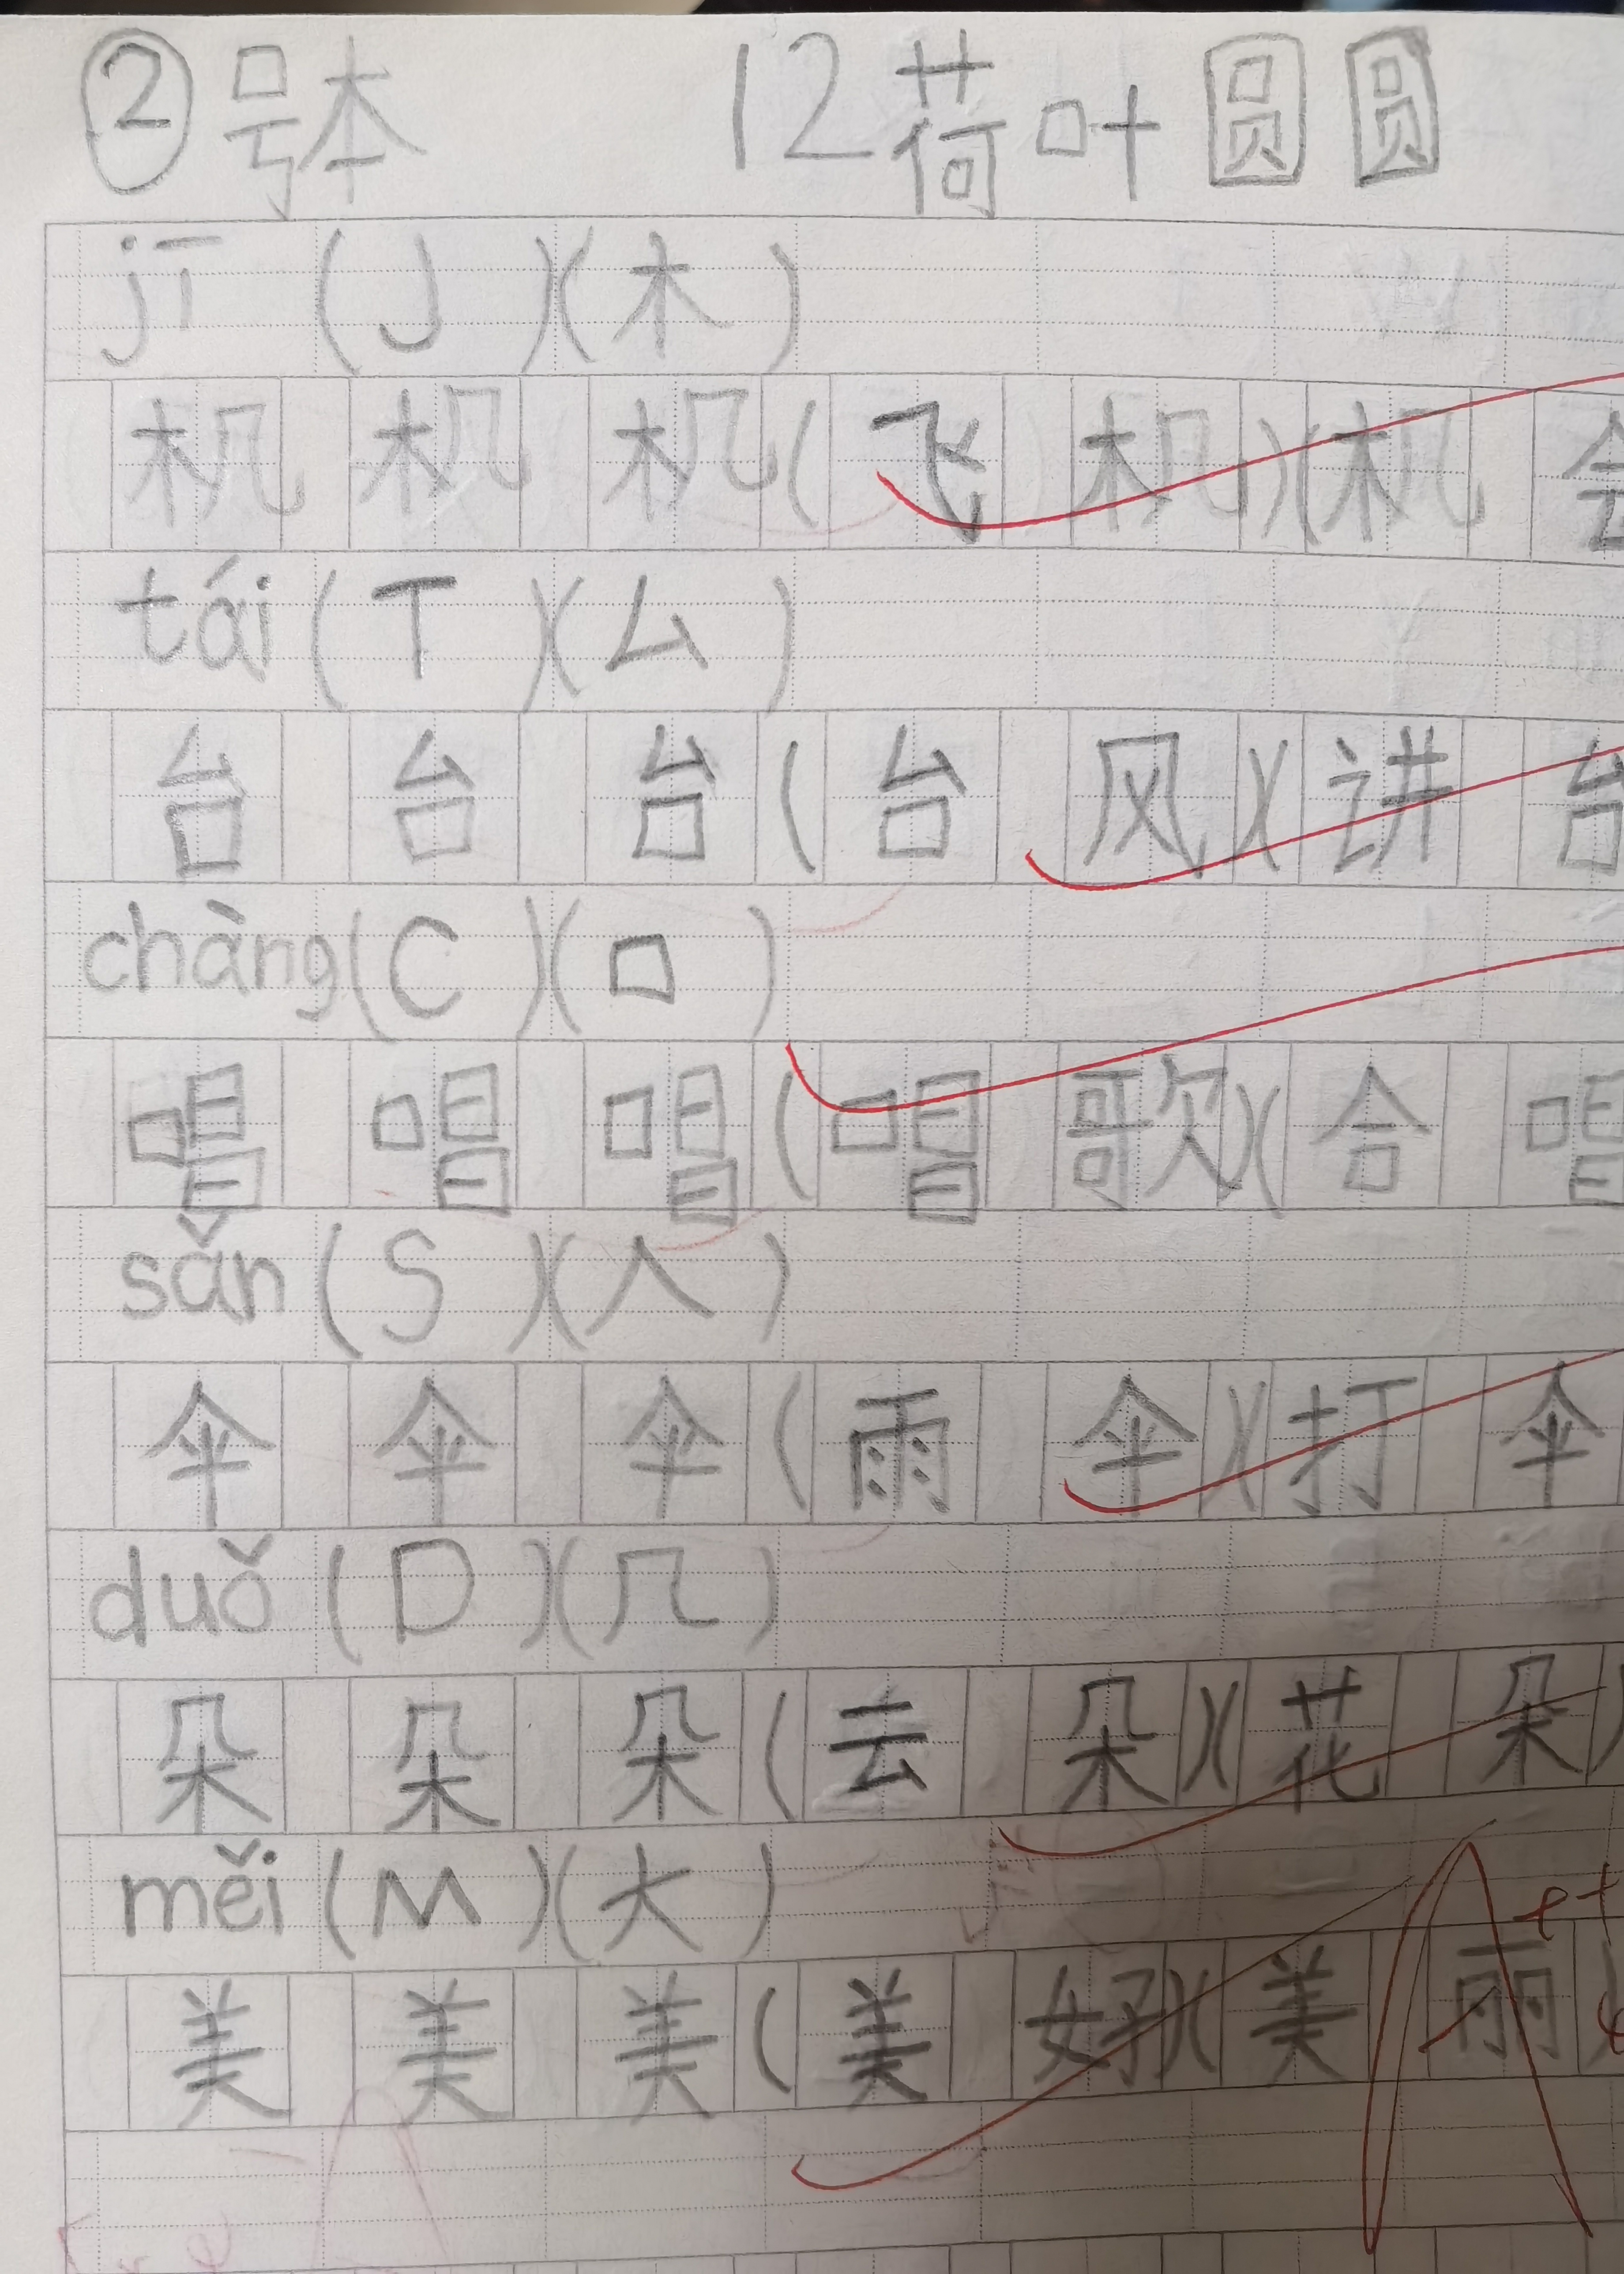 ②号本 12荷叶圆圆
jī (J)(木)
机 机 机(飞机)(机会
tái(T)(厶)
台 台 台(台风)(讲台
chàng(C)(口)
唱 唱 唱(唱歌)(合唱
sǎn(S)(人)
伞 伞 伞(雨伞)(打伞
duǒ(D)(几)
朵 朵 朵(云朵)(花朵)
měi(M)(大)
美 美 美(美好)(美丽)